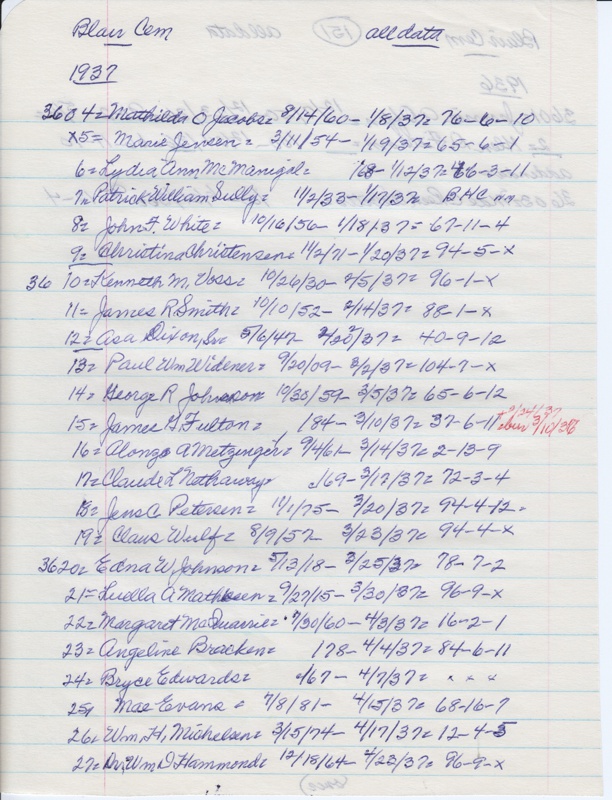 Blair Cem all data
1937
3604= Mathilda O Jacobs= 8/14/60- 1/8/37= 76-6-10
x5= Marie Jensen= 3/11/54- 1/19/37= 65-6-1
6= Lydia Ann McManigal= '68- 1/12/37= 66-3-11
7= Patrick William Sully= 11/2/33- 1/17/37= B.H.C.
8= John F. White= 10/16/56- 1/18/37= 67-11-4
9= Christina Christensen= 11/2/71- 1/20/37= 94-5-x
36 10= Kenneth M, Voss= 10/26/30- 2/5/37= 96-1-x
11= James R Smith= 10/10/52- 2/14/37= 88-1-x
12= Asa Dixon, Sr= 5/6/47- 2/20/37= 40-9-12
13= Paul Wm Widener= 9/20/09- 3/2/37= 104-7-x
14= George R Johnson 10/30/59- 3/5/37= 65-6-12
15= James G Fulton= 184- 3/10/37= 37-6-11 3/10/36
16= Alonzo A Metzinger= 9/4/61- 3/14/37= 2-13-9
17= Claude L Hathaway= 169- 3/17/37= 72-3-4
18= Jens C Petersen= 11/1/75- 3/20/37= 94-4-12=
19= Claus Wulf= 8/9/57- 3/23/37= 94-4-x
3620= Edna W Johnson= 5/13/18- 3/25/37= 78-7-2
21= Luella A Mathisen= 9/27/15- 3/30/37= 96-9-x
22= Margaret McQuarrie= 7/30/60- 4/3/37= 16-2-1
23= Angeline Bracken= 178- 4/4/37= 84-6-11
24= Bryce Edwards= 167- 4/7/37= x x x
25= Mae Evans= 7/8/81- 4/15/37= 68-16-7
26= Wm. H, Michelsen= 3/15/74- 4/17/37= 12-4-5
27= Dr, Wm D Hammond= 12/18/64- 4/23/37= 96-9-x